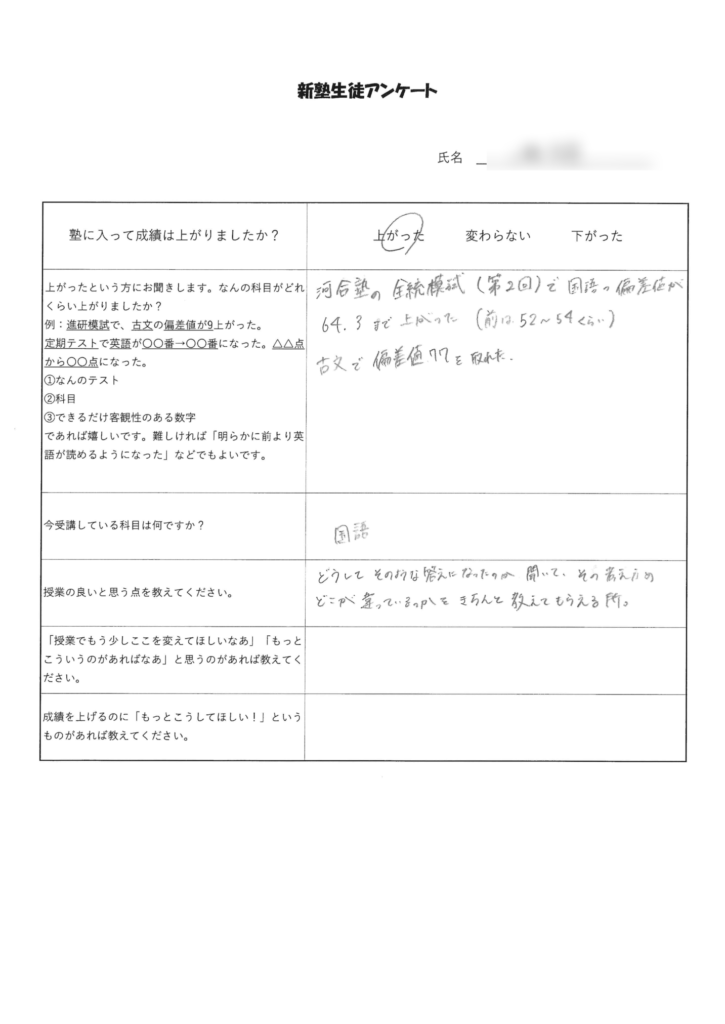 新塾生徒アンケート
氏名
塾に入って成績は上がりましたか？
上がった 変わらない 下がった
上がったという方にお聞きします。なんの科目がどれ
くらい上がりましたか？
例：進研模試で、古文の偏差値が9上がった。
定期テストで英語が〇〇番→〇〇番になった。△△点
から〇〇点になった。
①なんのテスト
②科目
③できるだけ客観性のある数字
であれば嬉しいです。難しければ「明らかに前より英
語が読めるようになった」などでもよいです。
河合塾の全統模試（第2回）で国語の偏差値が
64.3まで上がった（前は52～54くらい）
古文で偏差値77を取れた.
今受講している科目は何ですか？
国語
授業の良いと思う点を教えてください。
どうしてそのような答えになったのか聞いて、その考え方の
どこが違っているのかをきちんと教えてもらえる所。
「授業でもう少しここを変えてほしいなあ」「もっと
こういうのがあればなあ」と思うのがあれば教えてく
ださい。
成績を上げるのに「もっとこうしてほしい！」という
ものがあれば教えてください。